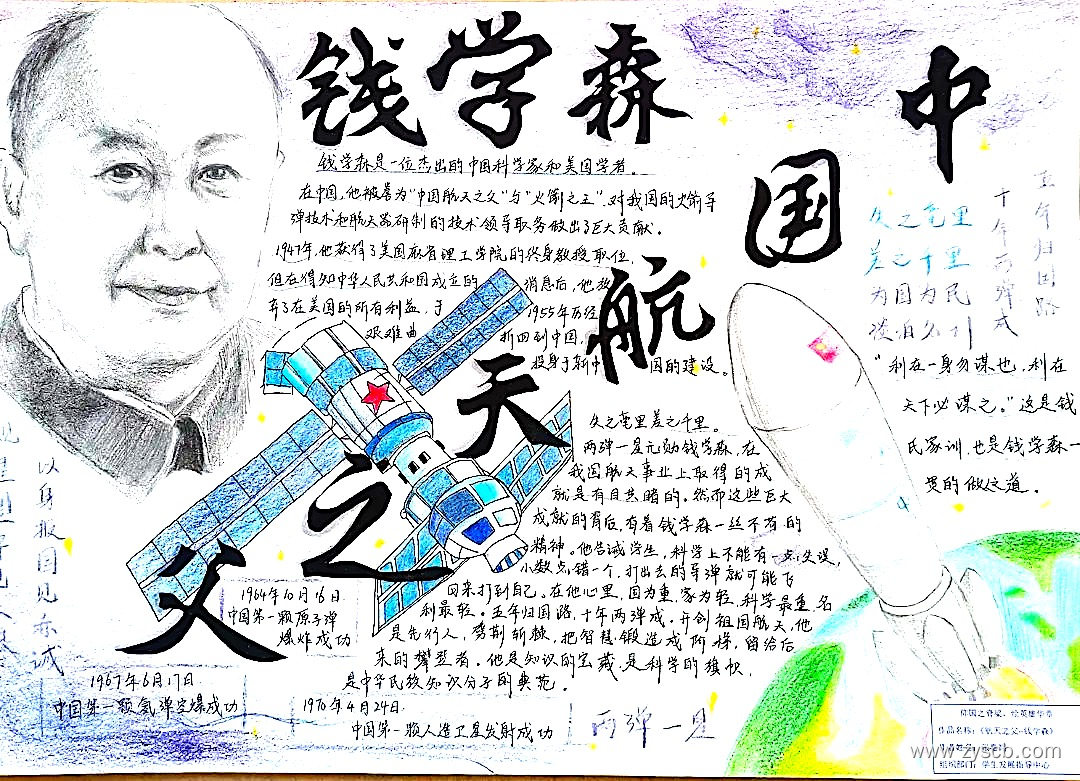 钱学森
中国航天之父
钱学森是一位杰出的中国科学家和美国学者。
在中国,他被誉为“中国航天之父”与“火箭之王”,对我国的火箭导
弹技术和航天器研制的技术领导职务做出了巨大贡献。
1947年,他获得了美国麻省理工学院的终身教授职位,
但在得知中华人民共和国成立的消息后,他放
弃了在美国的所有利益,于1955年历经
艰难曲折回到中国,
投身于新中国的建设。
久之毫里差之千里。
两弹一星元勋钱学森,在
我国航天事业上取得的成
就是有目共睹的。然而这些巨大
成就的背后,有着钱学森一丝不苟的
精神。他告诫学生,科学上不能有一点失误,
小数点错一个,打出去的导弹就可能飞
回来打到自己。在他心里,国为重,家为轻,科学最重,名
利最轻。五年归国路,十年两弹成。开创祖国航天,他
是先行人,劈荆斩棘,把智慧锻造成阶梯,留给后
来的攀登者。他是知识的宝藏,是科学的旗帜,
是中华民族知识分子的典范。
五年归国路
十年两弹成
久之毫里
差之千里
为国为民
“利在一身勿谋也,利在
天下必谋之。”这是钱
氏家训,也是钱学森一
贯的做人之道。
以身报国见赤诚
1964年10月16日
中国第一颗原子弹
爆炸成功
1967年6月17日
中国第一颗氢弹空爆成功
1970年4月24日
中国第一颗人造卫星发射成功
两弹一星
作品名称:《航天之父-钱学森》
组织部门:学生发展指导中心
www.zyscb.com